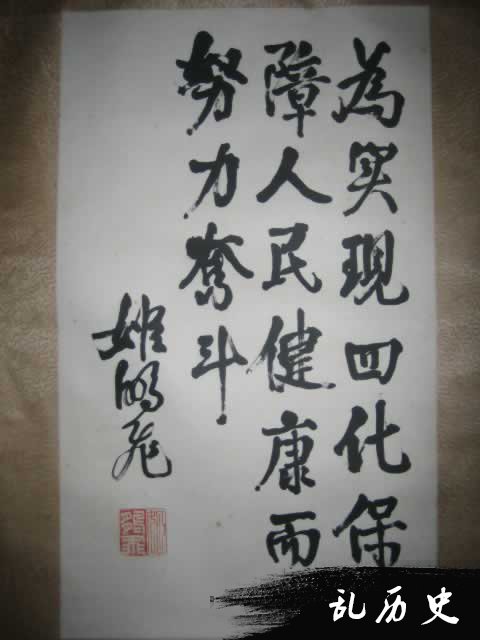 為实现四化保
障人民健康而
努力奋斗
姚鸿飞
乱历史